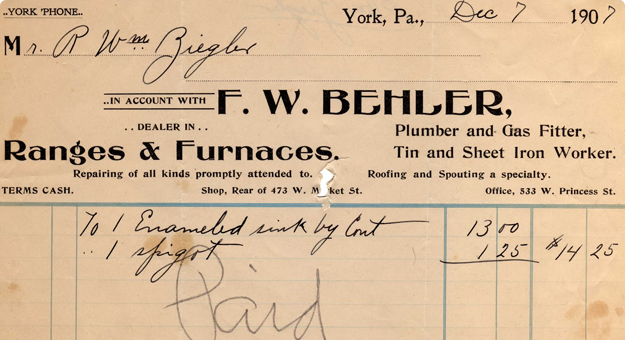 ..YORK 'PHONE..
York, Pa., Dec 7 1907
Mr. R Wm Ziegler
..IN ACCOUNT WITH F. W. BEHLER,
.. DEALER IN ..
Ranges & Furnaces.
Plumber and Gas Fitter,
Tin and Sheet Iron Worker.
Repairing of all kinds promptly attended to. Roofing and Spouting a specialty.
TERMS CASH. Shop, Rear of 473 W. Market St. Office, 533 W. Princess St.
To 1 Enameled sink by Cont 13 00
.. 1 spigot 1 25 $14 25
Paid